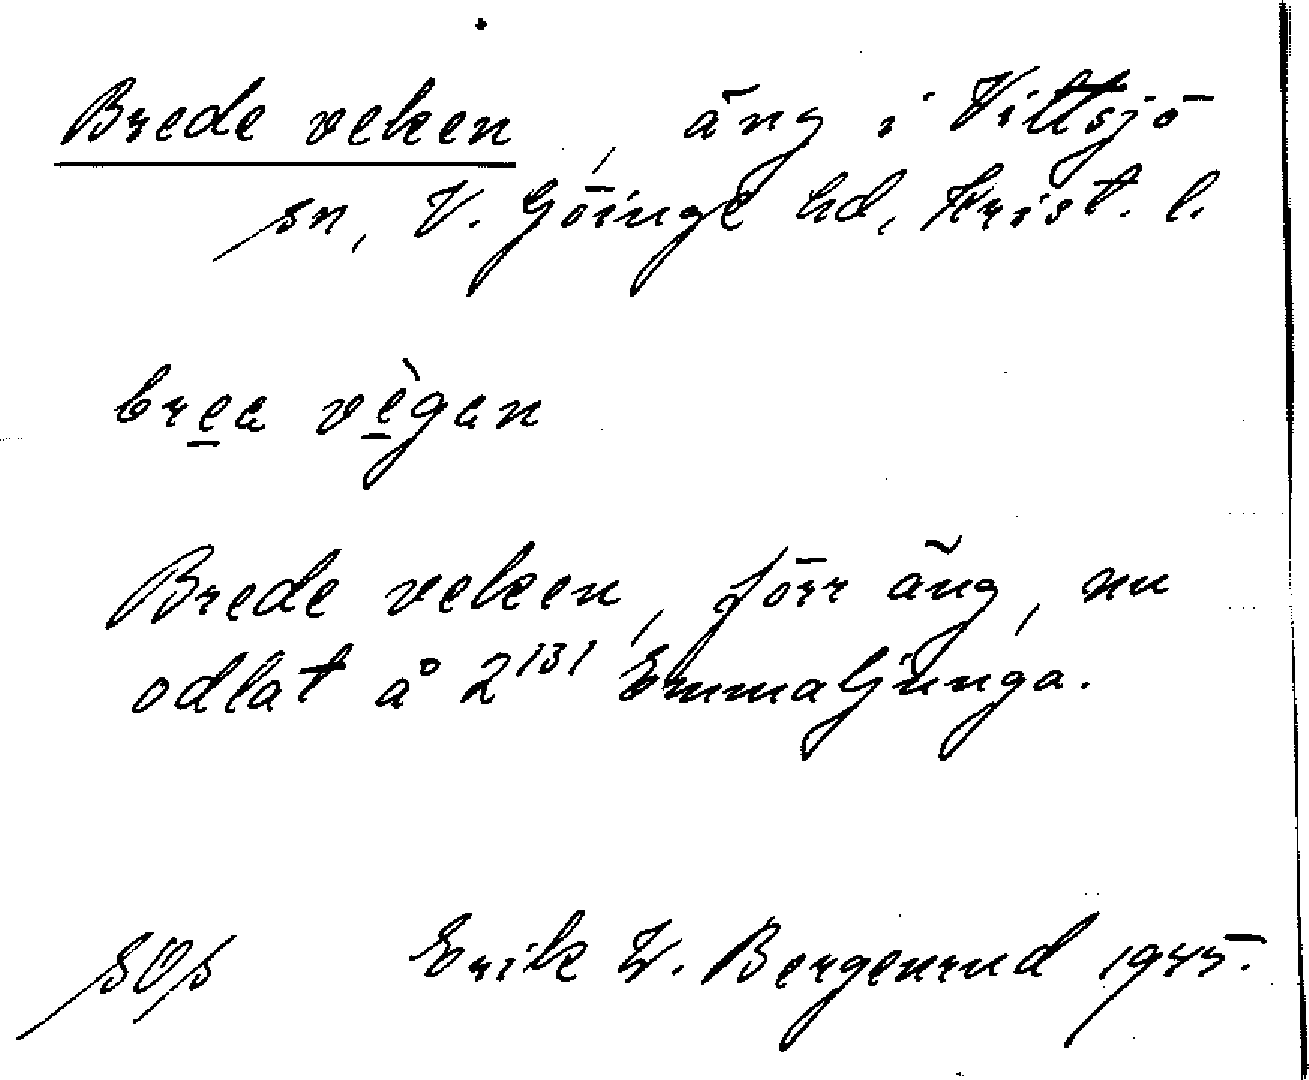 Brede veken, äng i Vittsjö
sn, V. Göinge hd, Krist. l.
brea vègan
Brede veken, förr äng, nu
odlat å 2¹³¹ Emmaljunga.
Erik W. Bergenrud 1945.